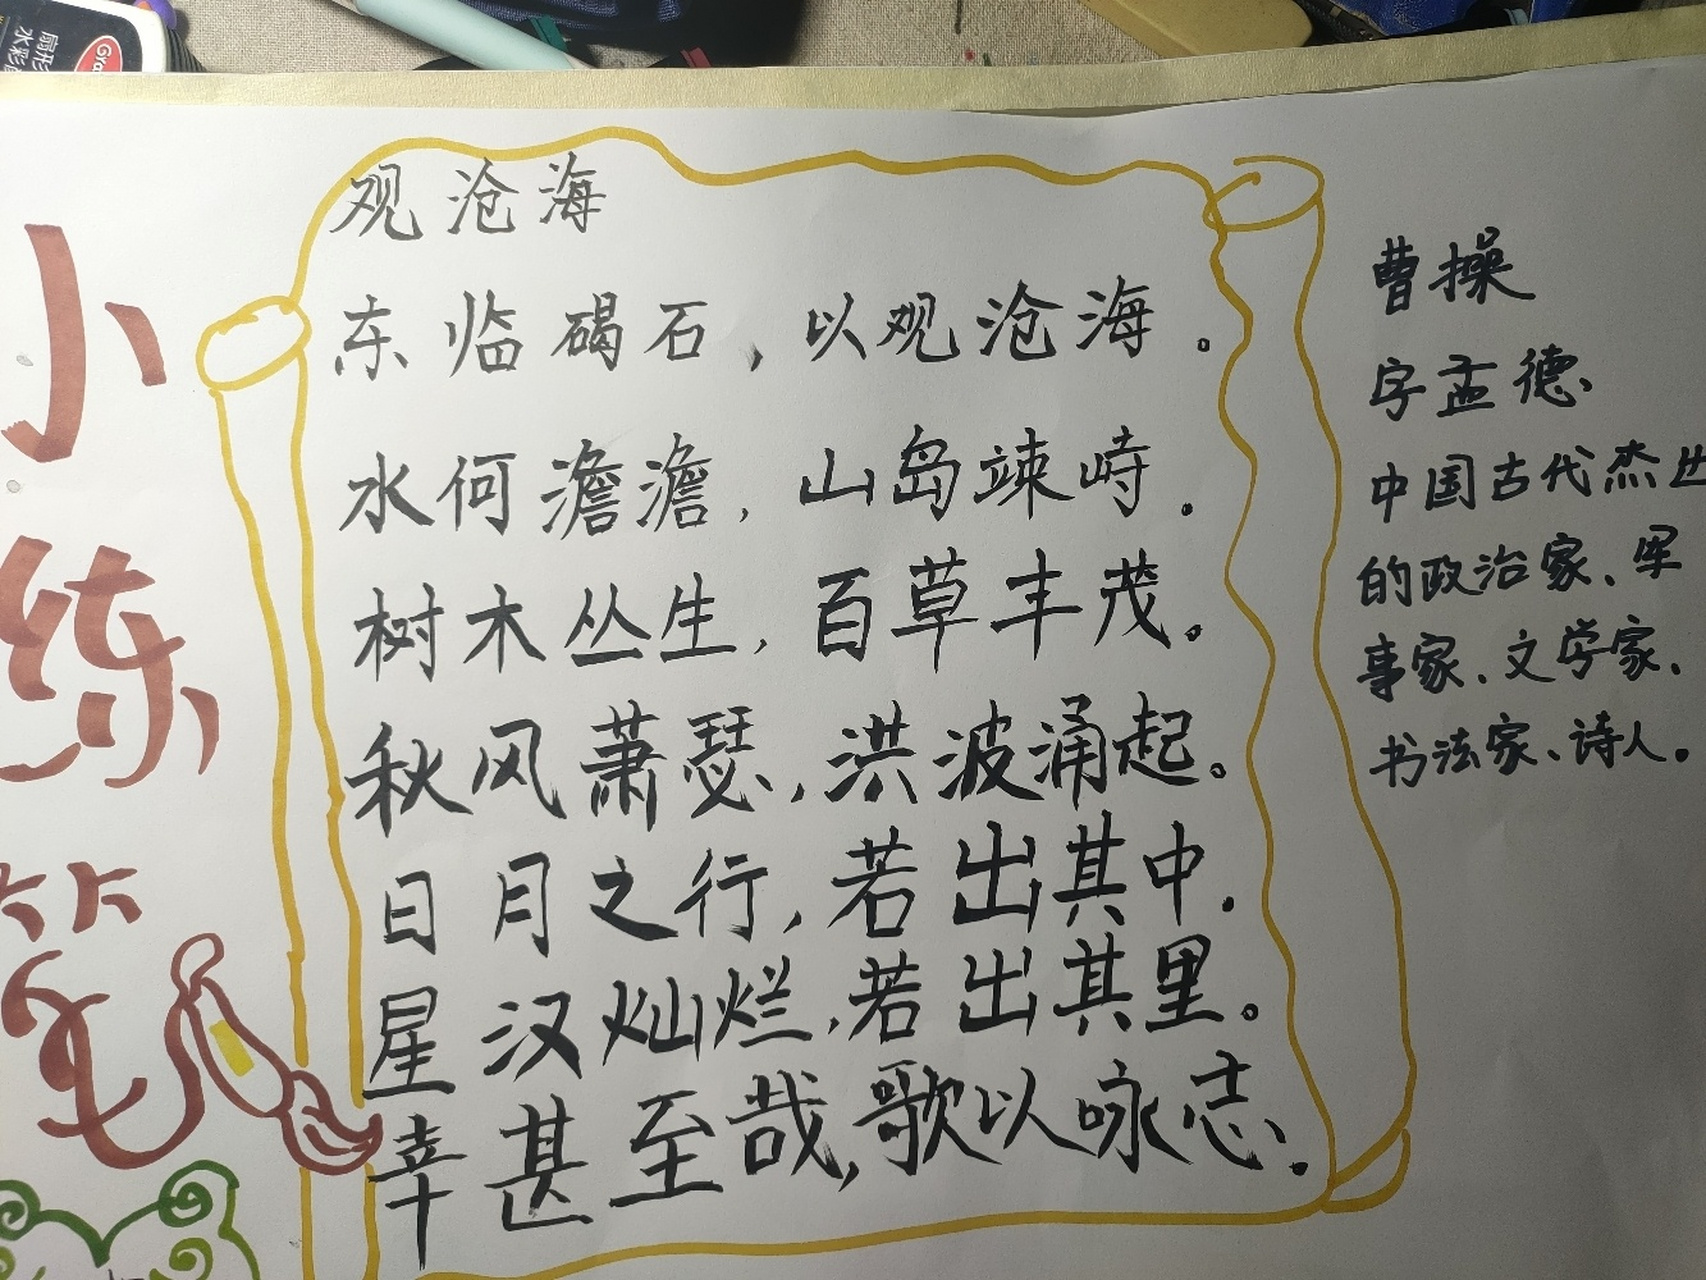 Gra
扇形
水彩
小练笔
观沧海
东临碣石，以观沧海。
水何澹澹，山岛竦峙。
树木丛生，百草丰茂。
秋风萧瑟，洪波涌起。
日月之行，若出其中.
星汉灿烂，若出其里。
幸甚至哉，歌以咏志.
曹操
字孟德、
中国古代杰出
的政治家、军
事家、文学家、
书法家、诗人。